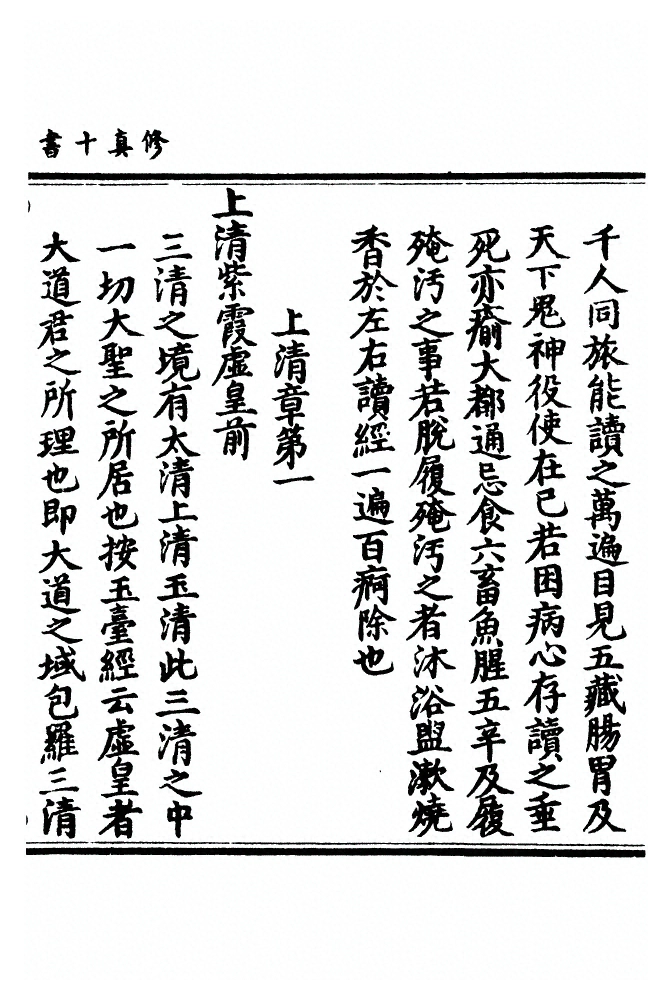 修真十書
千人同旅能讀之萬遍目見五藏腸胃及
天下鬼神役使在已若困病心存讀之垂
死亦瘉大都通忌食六畜魚腥五辛及履
殗汚之事若脫履殗汚之者沐浴盥漱燒
香於左右讀經一遍百痾除也
上清章第一
上清紫霞虛皇前
三清之境有太清上清玉清此三清之中
一切大聖之所居也按玉臺經云虛皇者
大道君之所理也即大道之域包羅三清